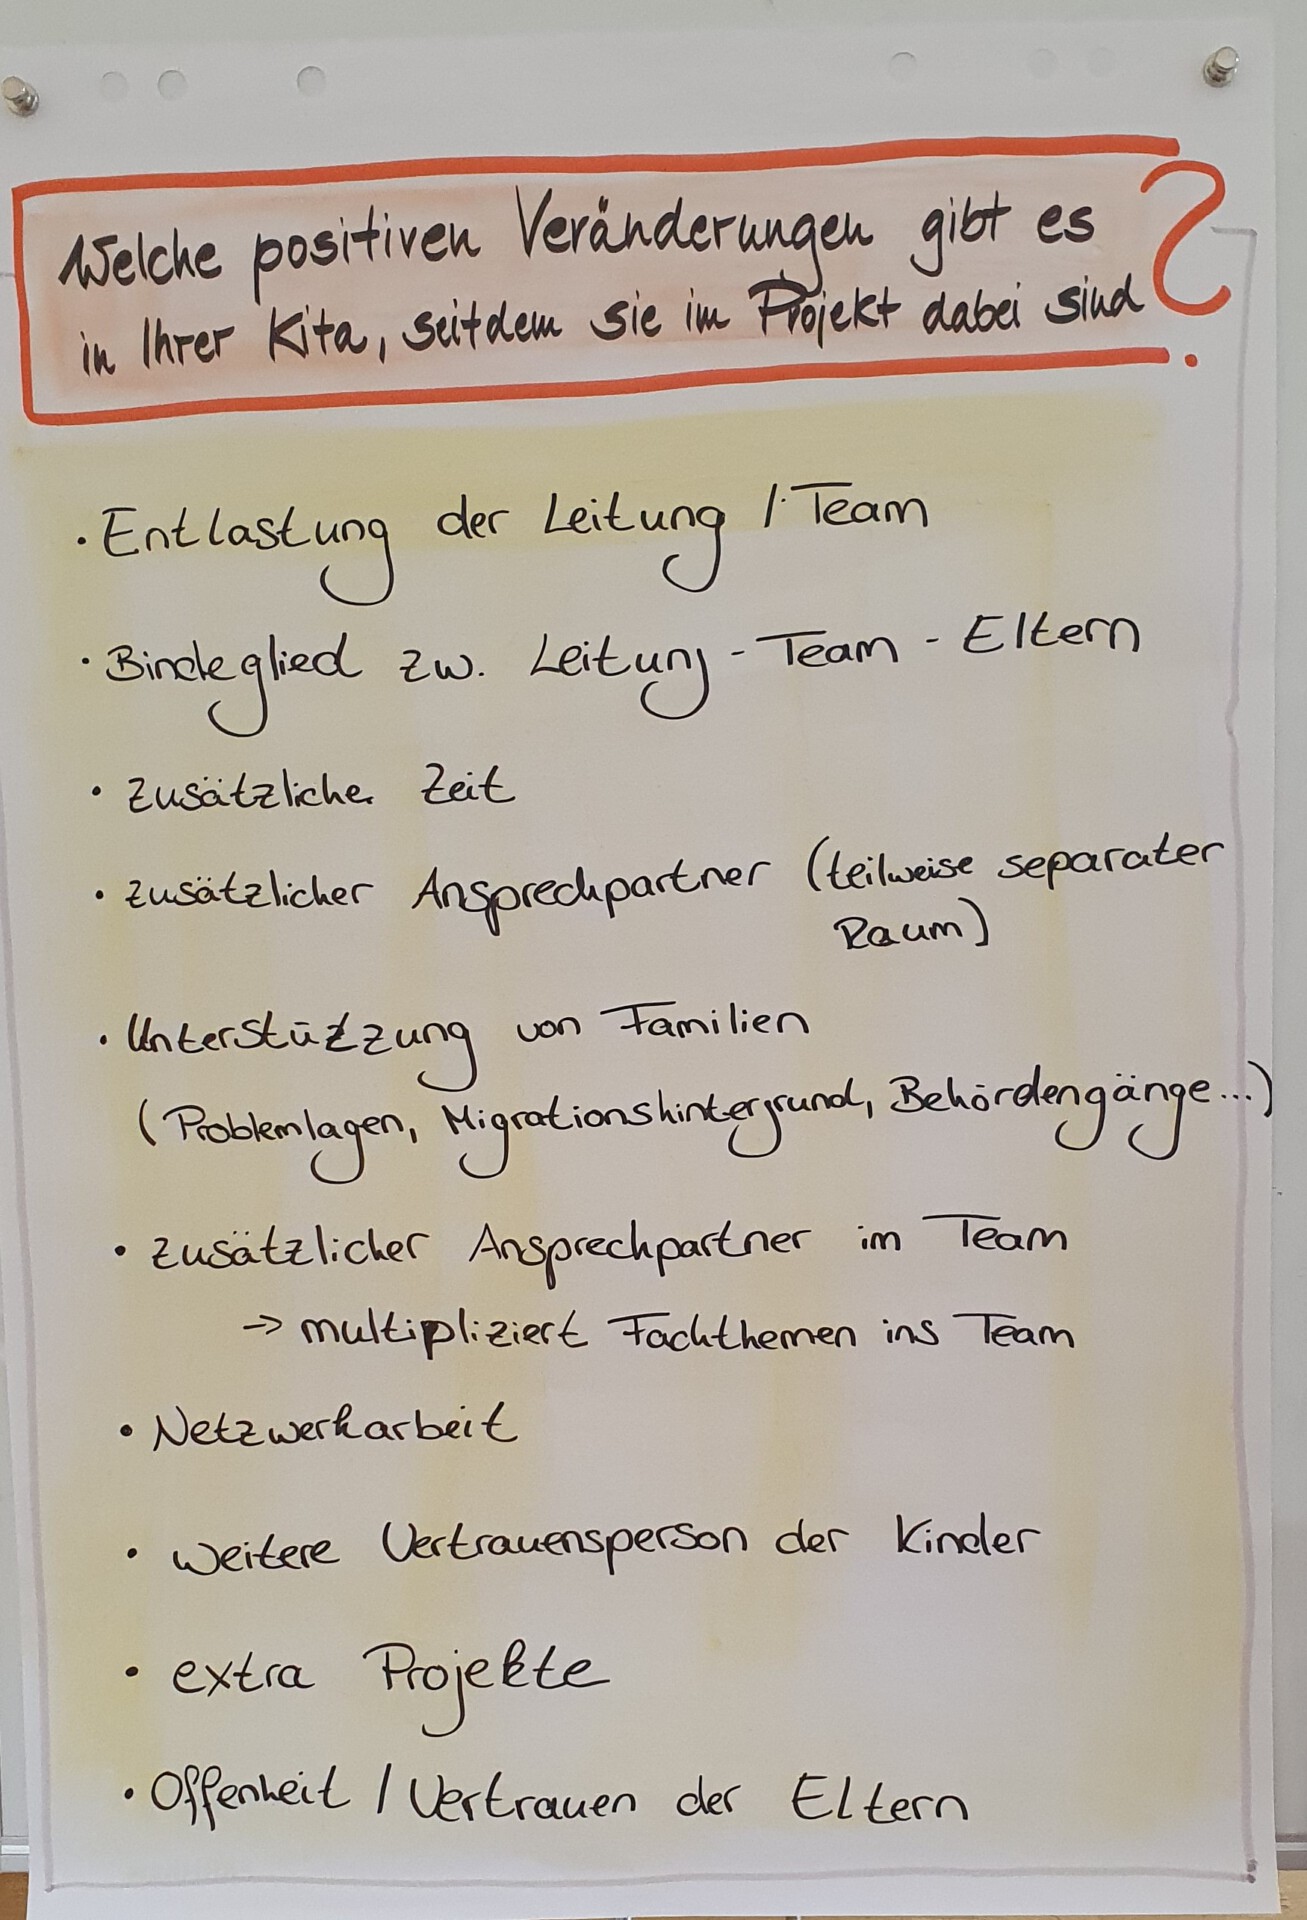 Welche positiven Veränderungen gibt es
in Ihrer Kita, seitdem sie im Projekt dabei sind ?
· Entlastung der Leitung / Team
· Bindeglied zw. Leitung - Team - Eltern
· zusätzliche Zeit
· zusätzlicher Ansprechpartner (teilweise separater
Raum)
· Unterstützung von Familien
(Problemlagen, Migrationshintergrund, Behördengänge...)
· zusätzlicher Ansprechpartner im Team
→ multipliziert Fachthemen ins Team
· Netzwerkarbeit
· weitere Vertrauensperson der Kinder
· extra Projekte
· Offenheit / Vertrauen der Eltern